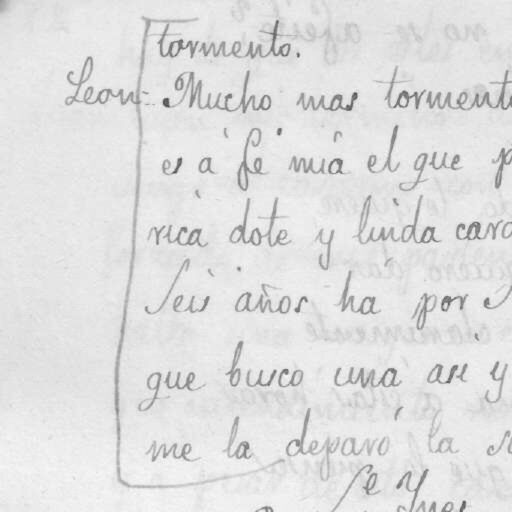 tormento.
Leon= Mucho mas tormento
es á fé mia el que p
rica dote y linda cara
Seis años ha por
que busco una asi y
me la deparó la
Ynes